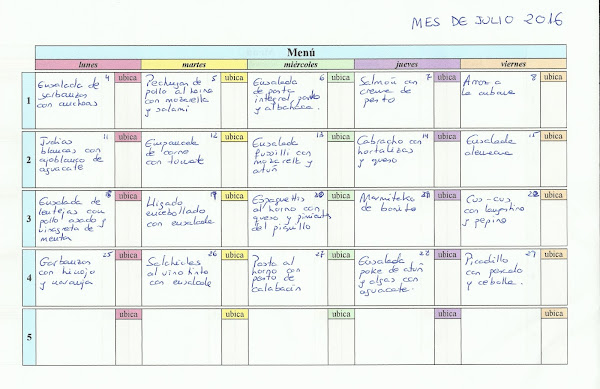 MES DE JULIO 2016
Menú
lunes martes miércoles jueves viernes
1
Ensalada de 4 ubica
garbanzos
con anchoas
Pechugas de 5 ubica
pollo al horno
con mozarella
y salami
Ensalada 6 ubica
de pasta
integral, pavo
y albahaca.
Salmón con 7 ubica
crema de
pesto
Arroz a 8 ubica
la cubana
2
Judías 11 ubica
blancas con
ajoblanco de
aguacate
Empanada 12 ubica
de carne
con tomate
Ensalada 13 ubica
fussilli con
mozarella y
atún
Cabracho con 14 ubica
hortalizas
y queso
Ensalada 15 ubica
alemana
3
Ensalada de 18 ubica
lentejas con
pollo asado y
vinagreta de
menta
Hígado 19 ubica
encebollado
con ensalada
Espaguettis 20 ubica
al horno con
queso y pimiento
del piquillo
Marmitako 21 ubica
de bonito
Cus-cus 22 ubica
con langostino
y pepino
4
Garbanzos 25 ubica
con hinojo
y naranja
Salchichas 26 ubica
al vino tinto
con ensalada
Pasta al 27 ubica
horno con
pesto de
calabacín
Ensalada 28 ubica
poke de atún
y algas con
aguacate.
Picadillo 29 ubica
con pescado
y cebolla.
5
ubica ubica ubica ubica ubica